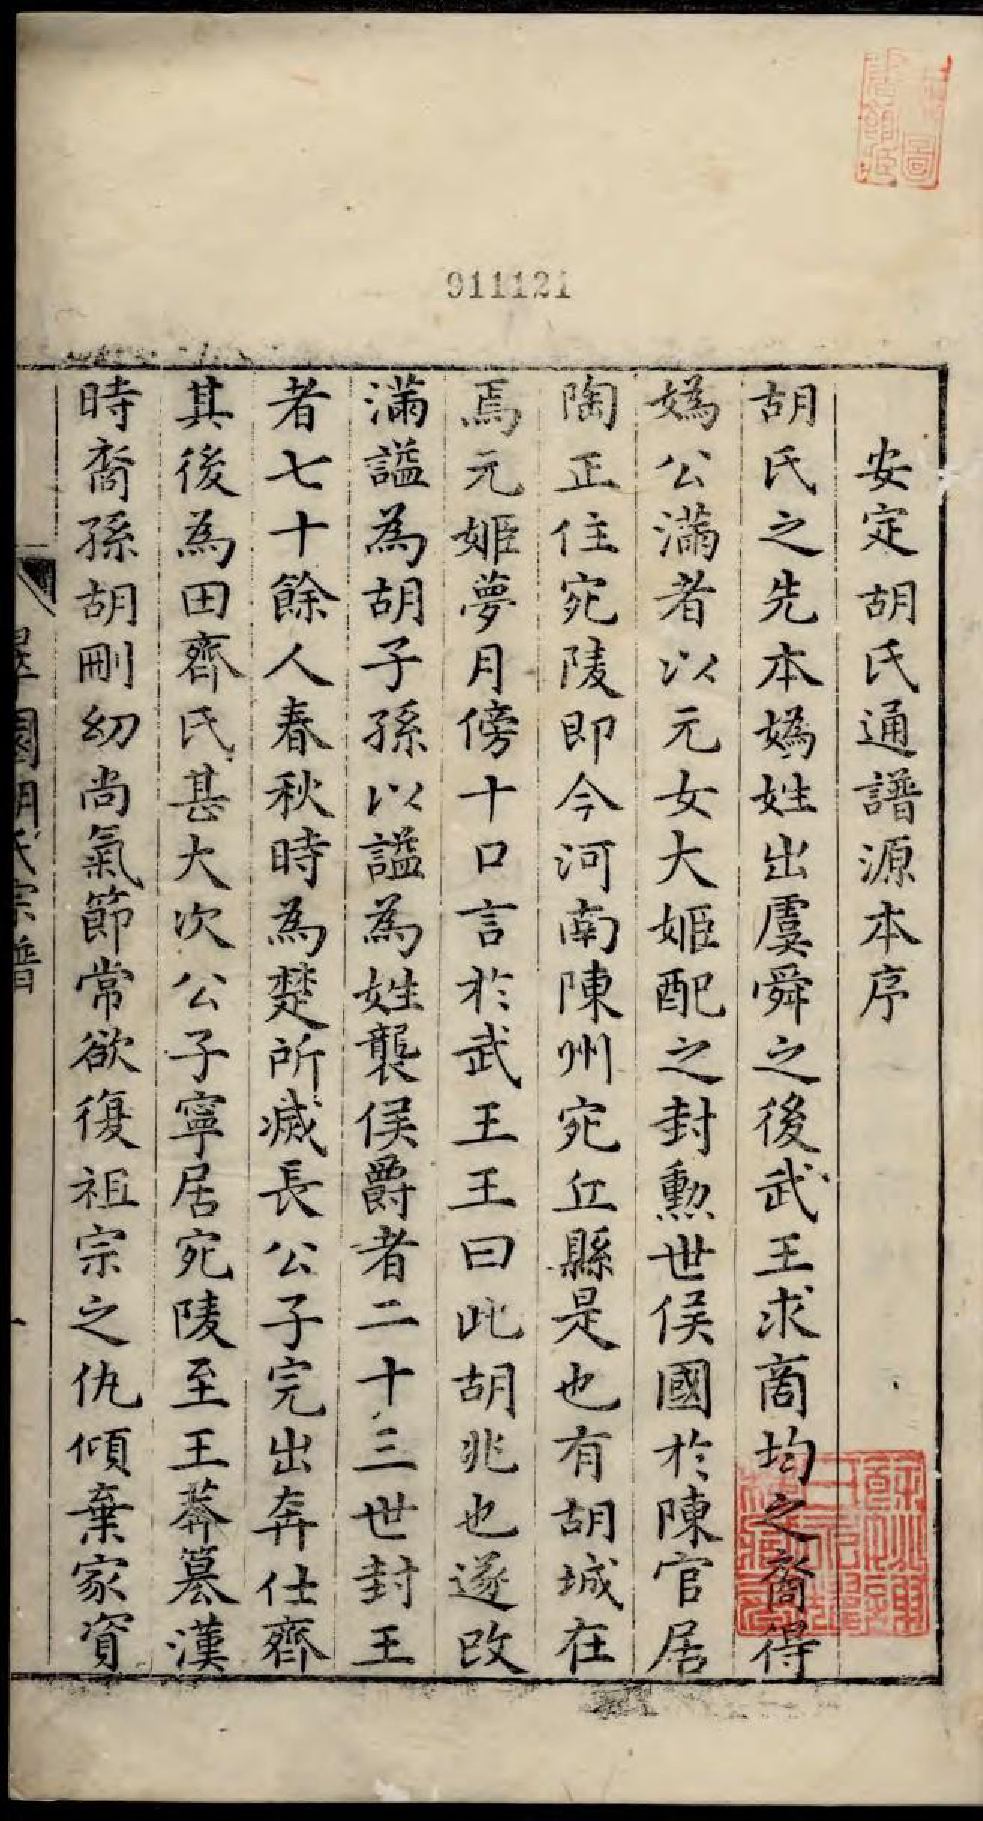 911121
安定胡氏通譜源本序
胡氏之先本媯姓出虞舜之後武王求商均之裔得
媯公滿者以元女大姬配之封勲世侯國於陳官居
陶正住宛陵即今河南陳州宛丘縣是也有胡城在
焉元姬夢月傍十口言於武王王曰此胡兆也遂改
滿謚為胡子孫以謚為姓襲侯爵者二十三世封王
者七十餘人春秋時為楚所滅長公子完出奔仕齊
其後為田齊氏甚大次公子寧居宛陵至王莽篡漢
時裔孫胡剛幼尚氣節常欲復祖宗之仇傾棄家資
胡氏宗譜